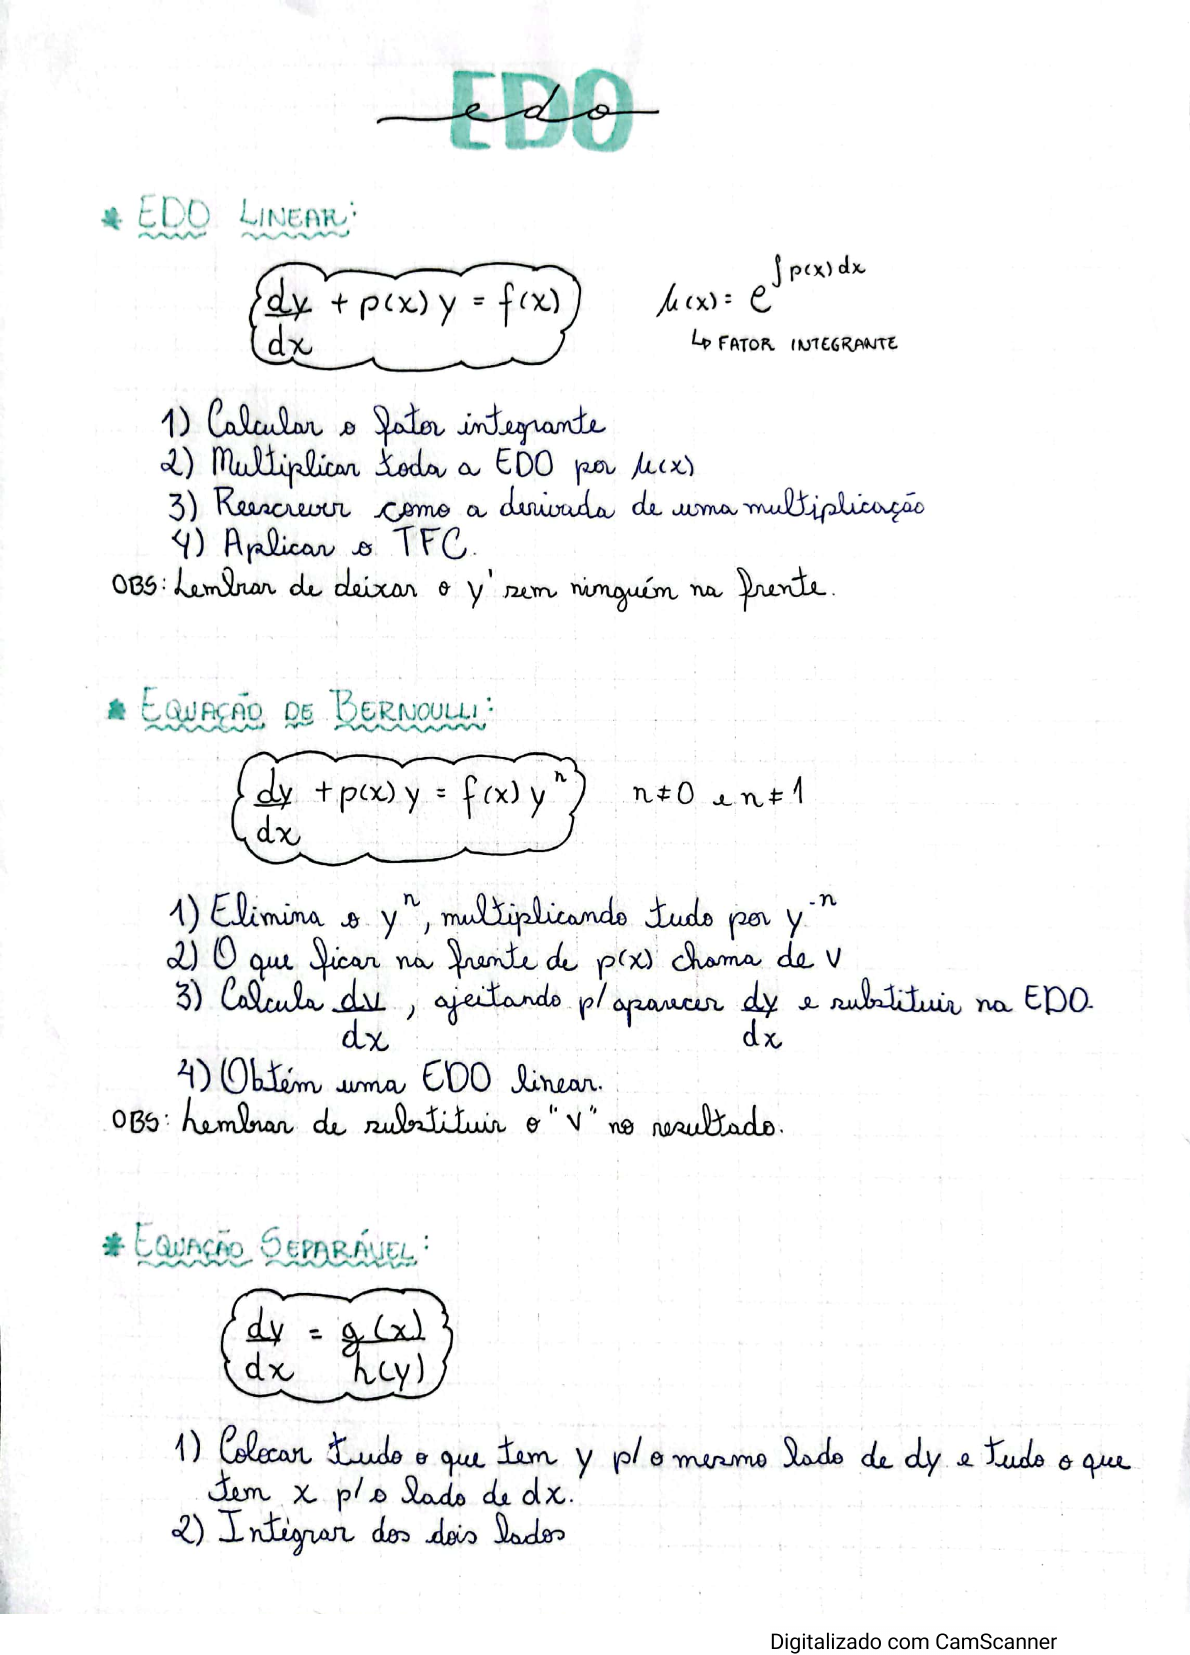 EDO
edo
* EDO LINEAR:
dy/dx + p(x) y = f(x)
μ(x) = e^∫p(x)dx
↳ FATOR INTEGRANTE
1) Calcular o fator integrante
2) Multiplicar toda a EDO por μ(x)
3) Reescrever como a derivada de uma multiplicação
4) Aplicar o TFC.
OBS: Lembrar de deixar o y' sem ninguém na frente.
* EQUAÇÃO DE BERNOULLI:
dy/dx + p(x) y = f(x) y^n
n ≠ 0 e n ≠ 1
1) Elimina o y^n, multiplicando tudo por y^-n
2) O que ficar na frente de p(x) chama de v
3) Calcula dv/dx, ajeitando p/ aparecer dy/dx e substituir na EDO.
4) Obtém uma EDO linear.
OBS: Lembrar de substituir o "v" no resultado.
* EQUAÇÃO SEPARÁVEL:
dy/dx = g(x)/h(y)
1) Colocar tudo o que tem y p/ o mesmo lado de dy e tudo o que
tem x p/ o lado de dx.
2) Integrar dos dois lados
Digitalizado com CamScanner